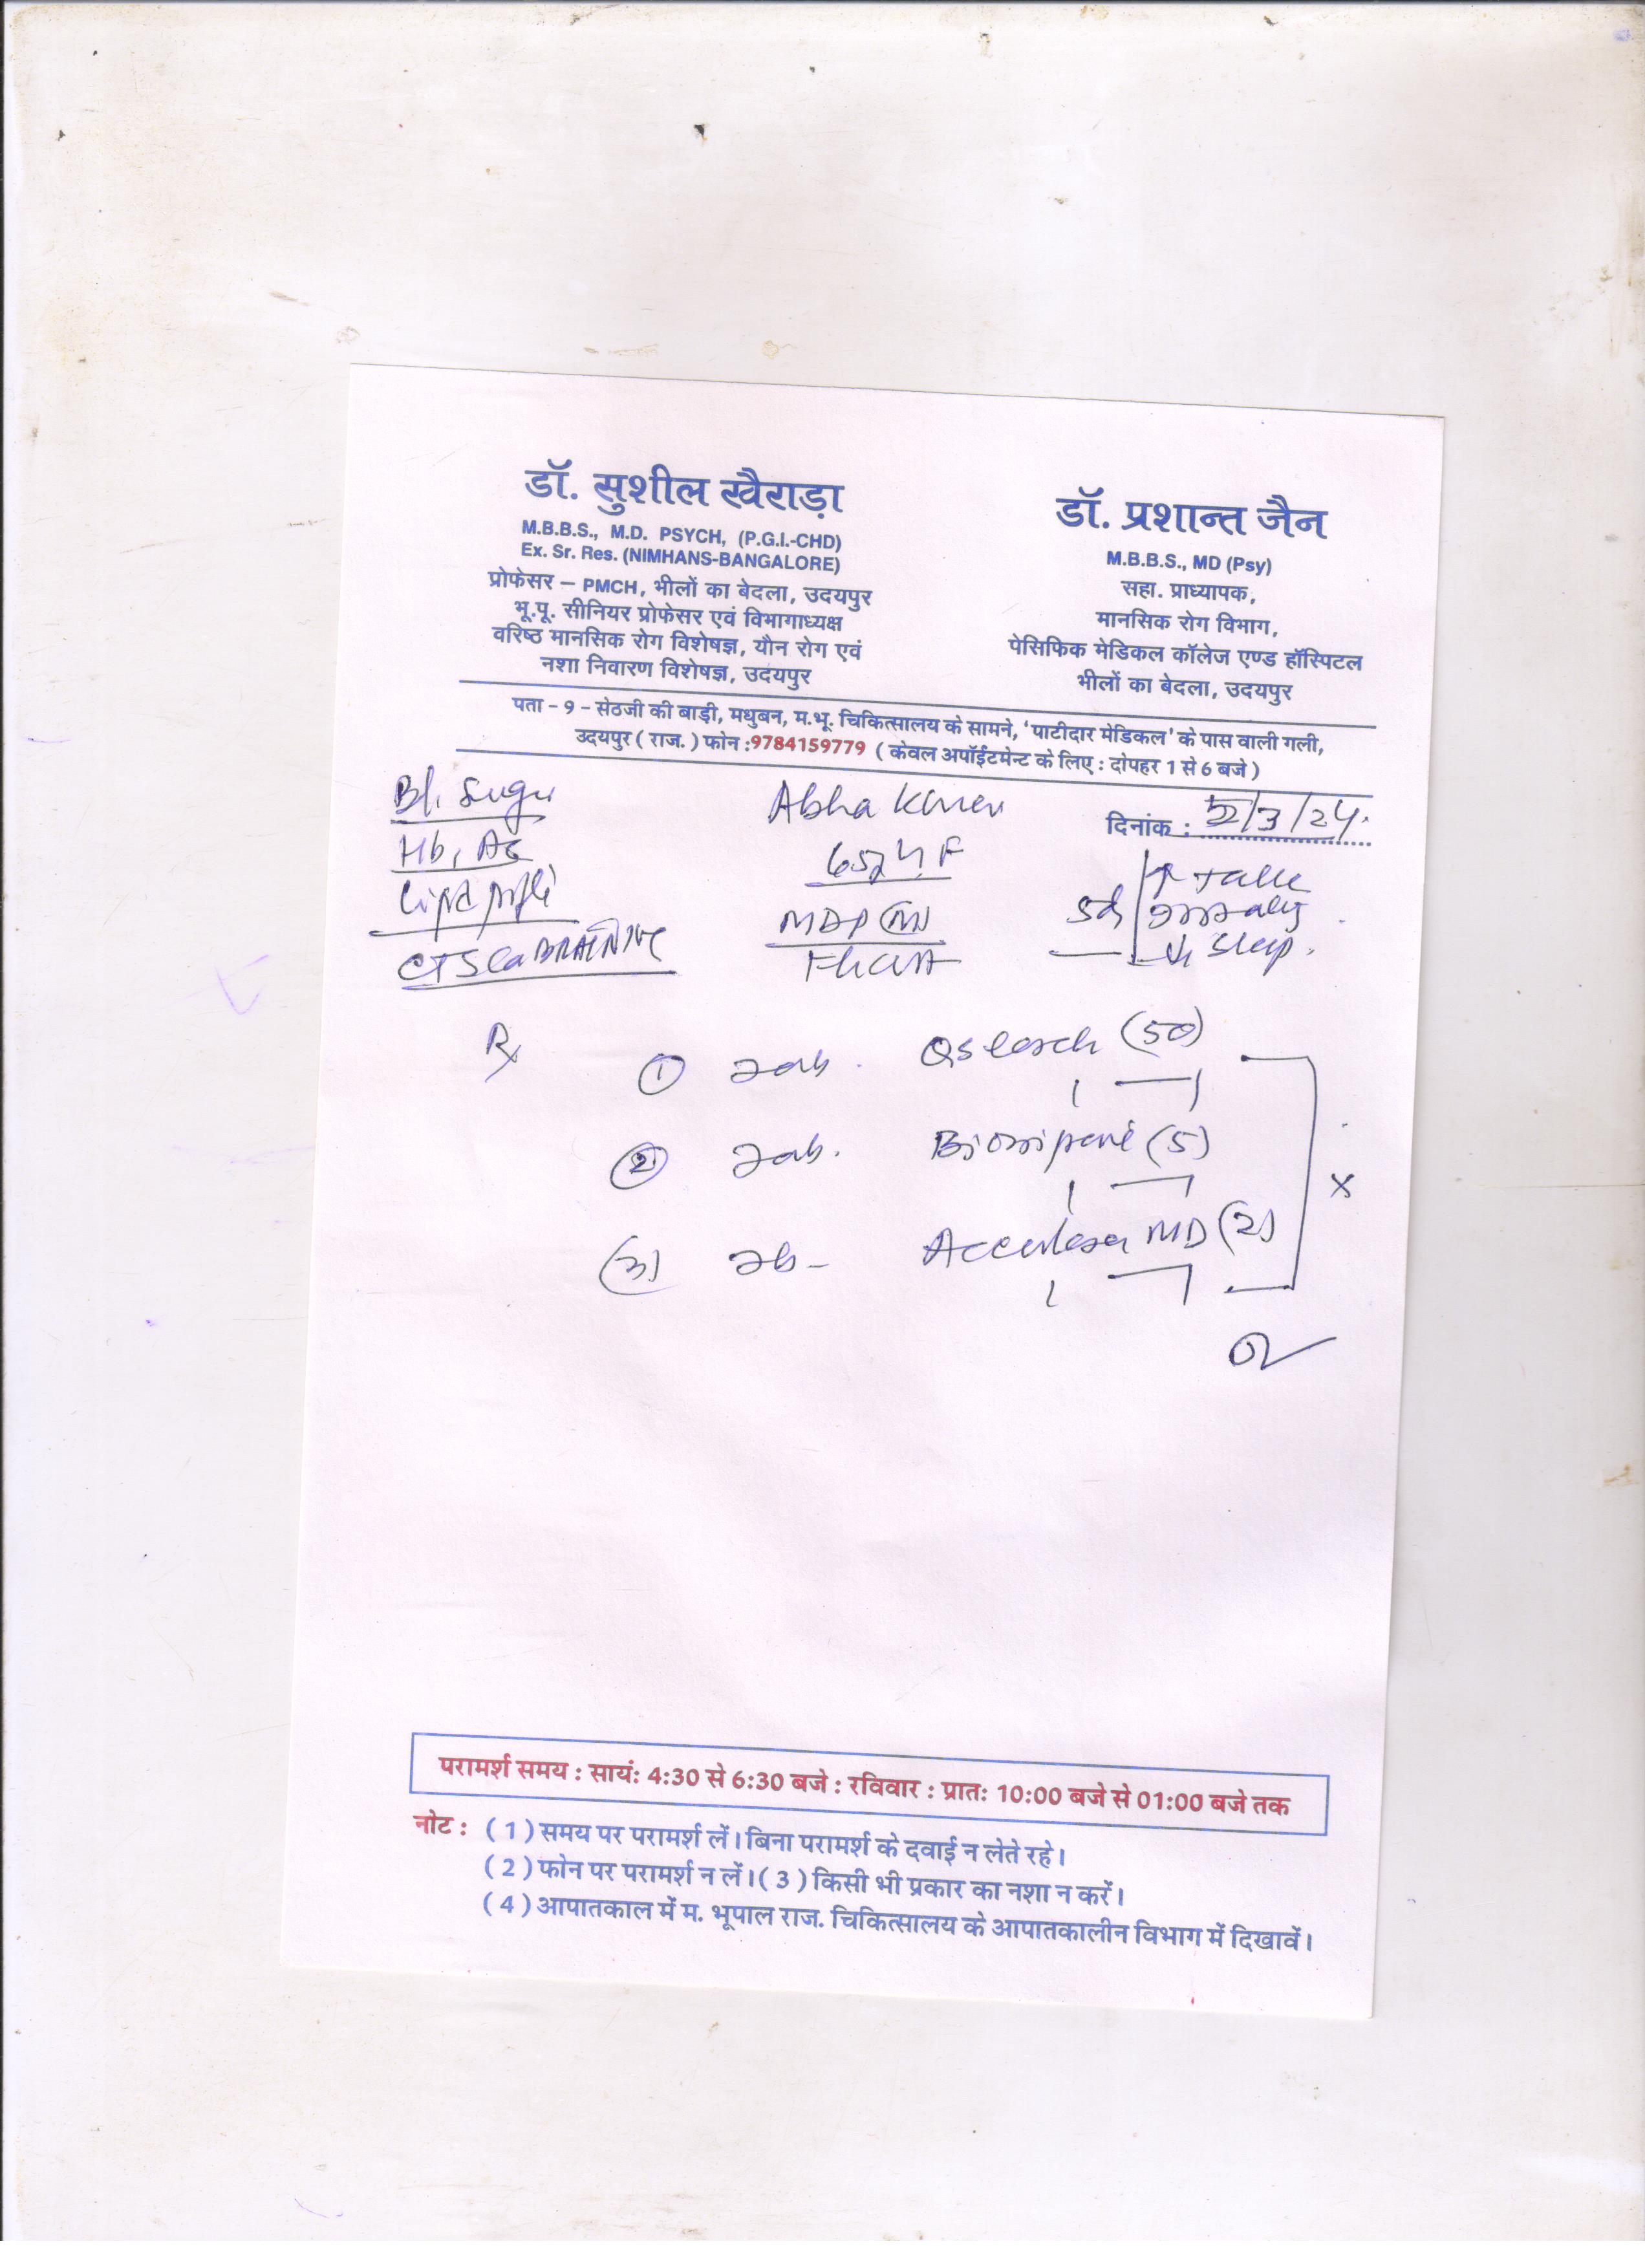 डॉ. सुशील खैराड़ा
M.B.B.S., M.D. PSYCH, (P.G.I.-CHD)
Ex. Sr. Res. (NIMHANS-BANGALORE)
प्रोफेसर – PMCH, भीलों का बेदला, उदयपुर
भू.पू. सीनियर प्रोफेसर एवं विभागाध्यक्ष
वरिष्ठ मानसिक रोग विशेषज्ञ, यौन रोग एवं
नशा निवारण विशेषज्ञ, उदयपुर
डॉ. प्रशान्त जैन
M.B.B.S., MD (Psy)
सहा. प्राध्यापक,
मानसिक रोग विभाग,
पेसिफिक मेडिकल कॉलेज एण्ड हॉस्पिटल
भीलों का बेदला, उदयपुर
पता - 9 - सेठजी की बाड़ी, मधुबन, म.भू. चिकित्सालय के सामने, 'पाटीदार मेडिकल' के पास वाली गली,
उदयपुर ( राज. ) फोन :9784159779 ( केवल अपॉईंटमेन्ट के लिए : दोपहर 1 से 6 बजे )
Bl. Sugar
Hb, A
Lipid
CT BRAIN
Abha
65 F
MDP (M)
दिनांक : /3/24.
5d ↑ Talk
↓ Sleep.
Rx
① Tab. (50)
② Tab. (5)
(3) Tb - MD (2)
x
परामर्श समय : सायं: 4:30 से 6:30 बजे : रविवार : प्रातः 10:00 बजे से 01:00 बजे तक
नोट : ( 1 ) समय पर परामर्श लें। बिना परामर्श के दवाई न लेते रहे।
( 2 ) फोन पर परामर्श न लें। ( 3 ) किसी भी प्रकार का नशा न करें।
( 4 ) आपातकाल में म. भूपाल राज. चिकित्सालय के आपातकालीन विभाग में दिखावें।